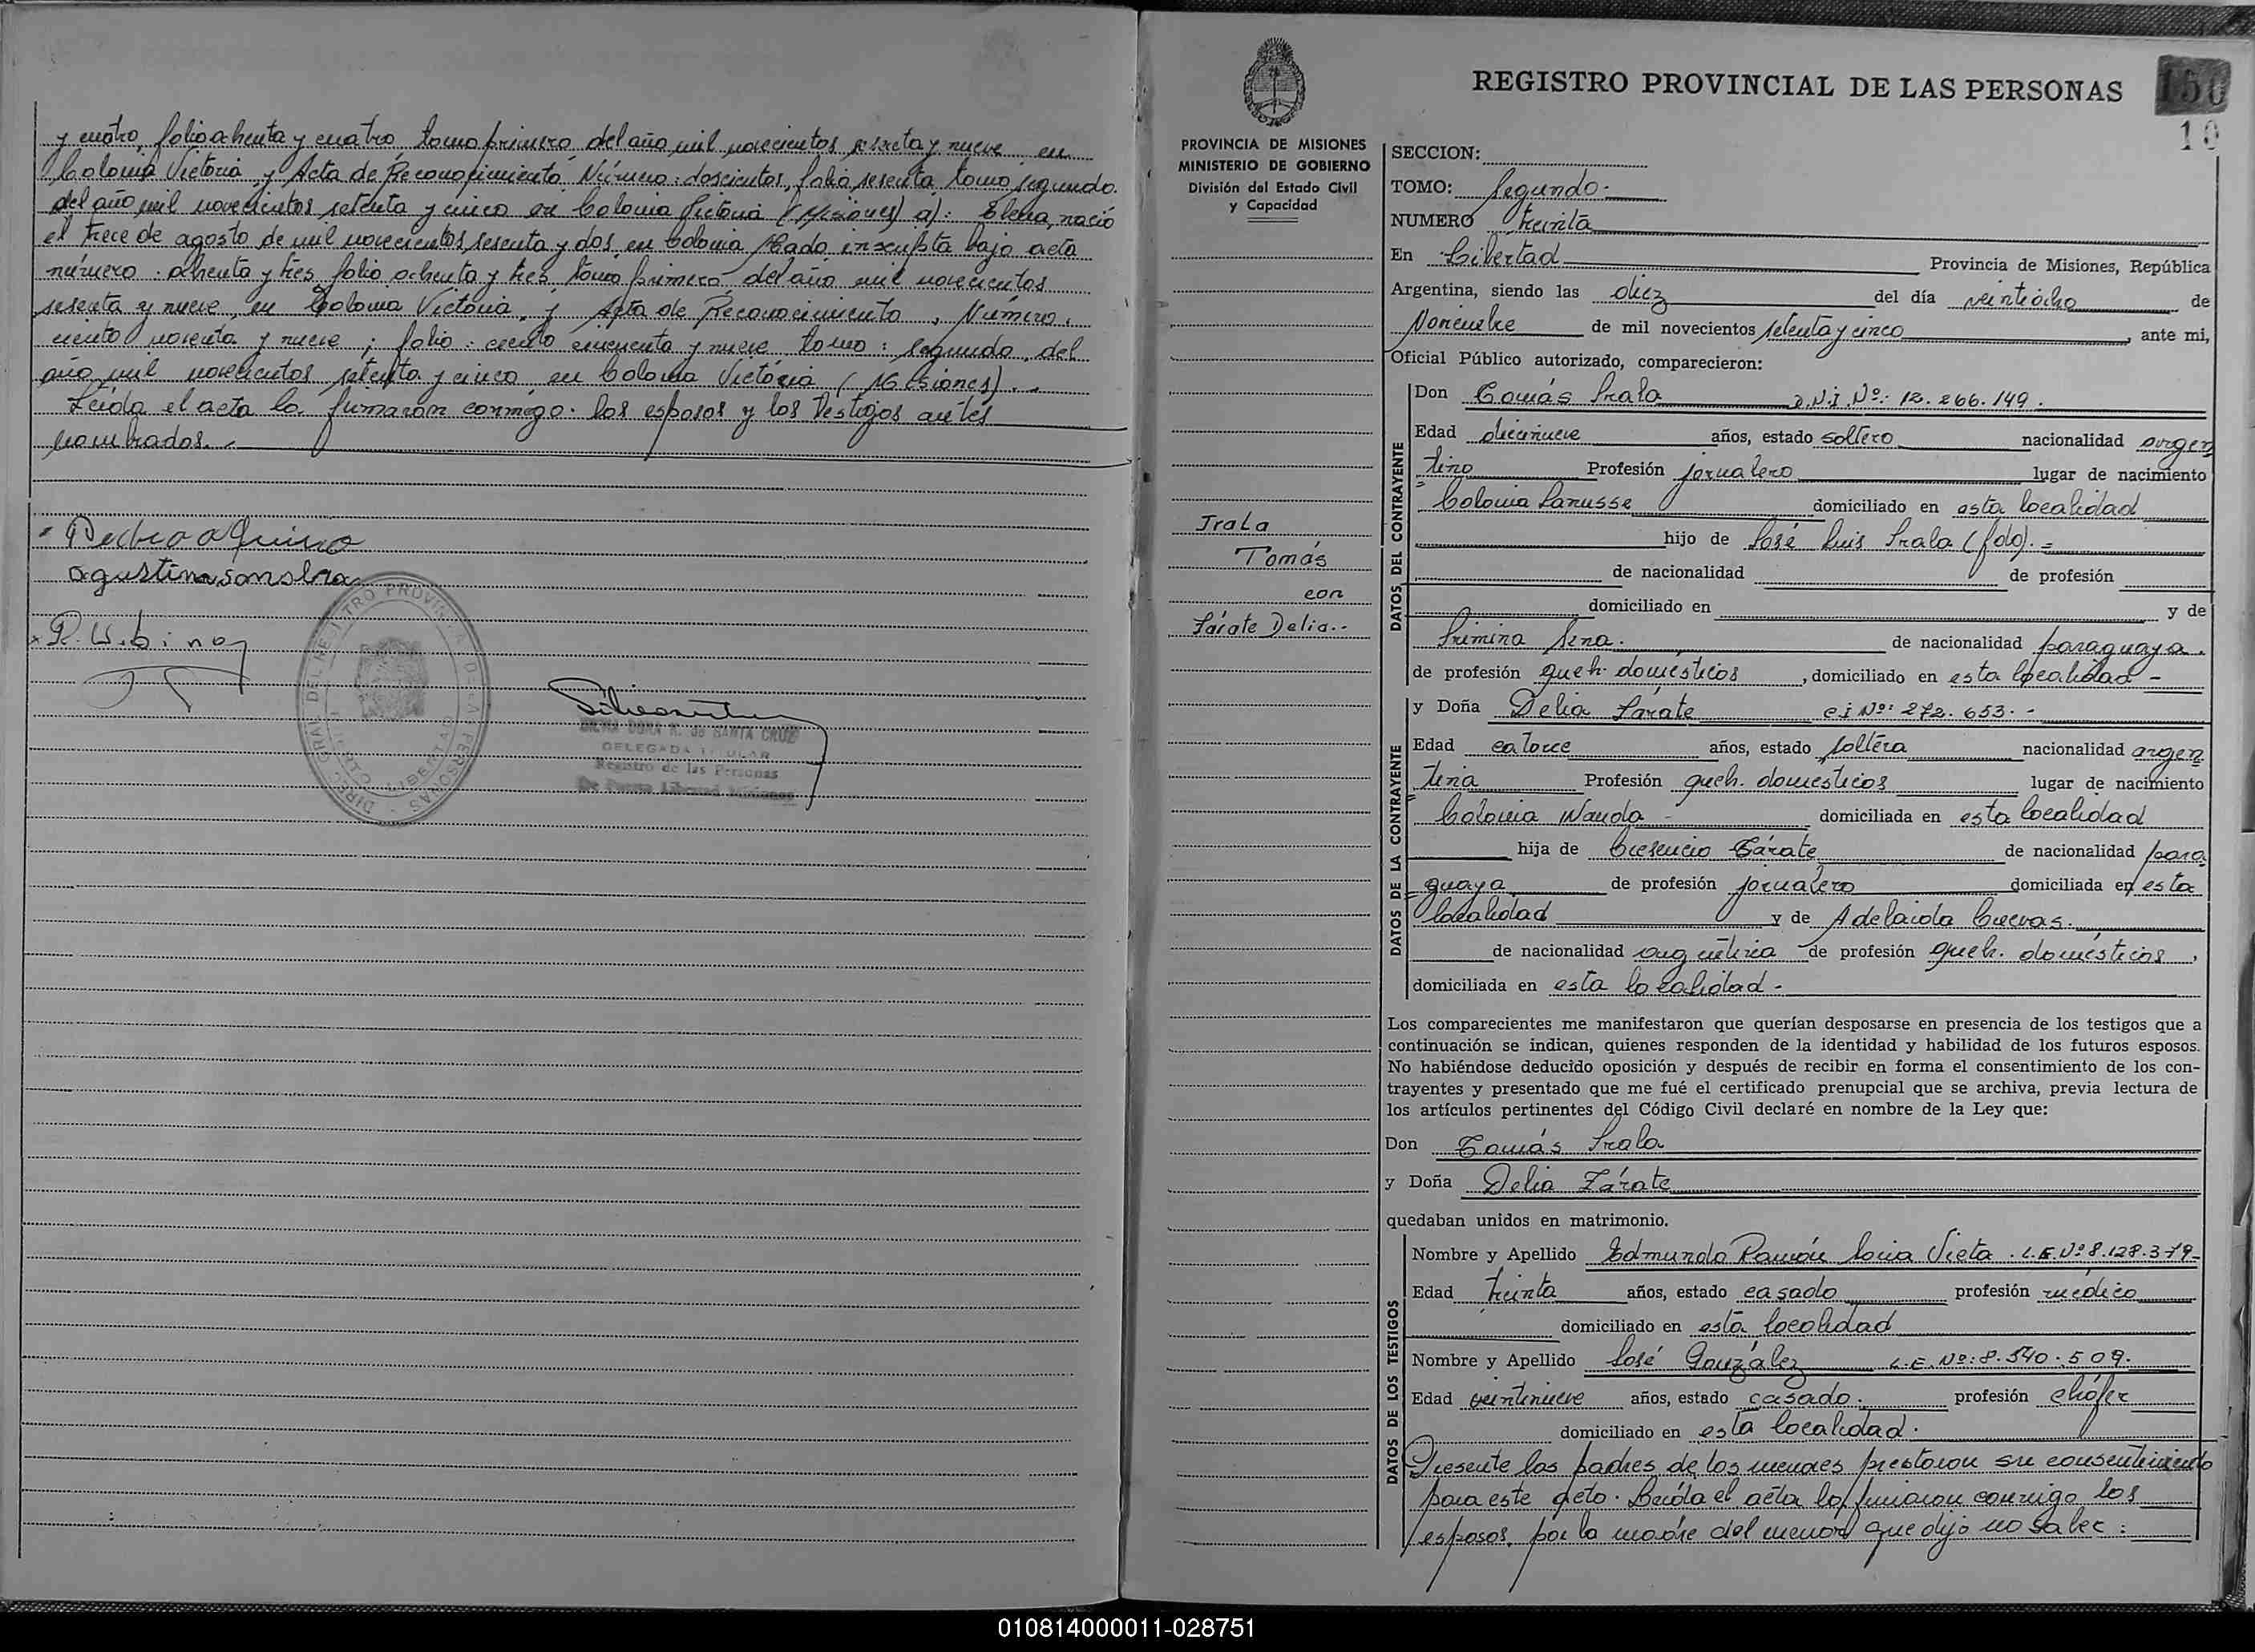 y cuatro, folio ochenta y cuatro tomo primero del año mil novecientos sesenta y nueve en
Colonia Victoria y Acta de Reconocimiento Número: doscientos, folio sesenta tomo segundo
del año mil novecientos setenta y cinco en Colonia Victoria (Misiones) a): Elena, nació
el trece de agosto de mil novecientos sesenta y dos en Colonia inscripta bajo acta
número: ochenta y tres folio ochenta y tres, tomo primero del año mil novecientos
sesenta y nueve, en Colonia Victoria, y Acta de Reconocimiento, Número,
ciento noventa y nueve; folio: ciento cincuenta y nueve tomo: segundo, del
año mil novecientos setenta y cinco en Colonia Victoria (Misiones).-
Leída el acta la firmaron conmigo los esposos y los testigos antes
nombrados.-
Pedro aquino
agustina sanabria
SILVIA DORA R. de SANTA CRUZ
DELEGADA TITULAR
Registro de las Personas
De Puerto Libertad Misiones
REGISTRO PROVINCIAL DE LAS PERSONAS
150
10
PROVINCIA DE MISIONES
MINISTERIO DE GOBIERNO
División del Estado Civil
y Capacidad
Irala
Tomás
con
Zárate Delia.-
SECCION:
TOMO: Segundo.-
NUMERO treinta
En Libertad Provincia de Misiones, República
Argentina, siendo las diez del día veintiocho de
Noviembre de mil novecientos setenta y cinco, ante mi,
Oficial Público autorizado, comparecieron:
DATOS DEL CONTRAYENTE
Don Tomás Irala D.N.I. Nº: 12.266.149.
Edad diecinueve años, estado soltero nacionalidad argen
tino Profesión jornalero lugar de nacimiento
Colonia Lanusse domiciliado en esta localidad
hijo de José Luis Irala (fdo).=
de nacionalidad de profesión
domiciliado en y de
Primina Sena. de nacionalidad paraguaya.
de profesión queh. domésticos, domiciliado en esta localidad -
DATOS DE LA CONTRAYENTE
y Doña Delia Zárate C.I Nº: 272.653.-
Edad catorce años, estado soltera nacionalidad argen
tina Profesión queh. domesticos lugar de nacimiento
Colonia Wanda domiciliada en esta localidad
hija de Cresencio Zárate de nacionalidad para
guaya de profesión jornalero domiciliada en esta
localidad y de Adelaida Cuevas.
de nacionalidad argentina de profesión queh. domésticos,
domiciliada en esta localidad -
Los comparecientes me manifestaron que querían desposarse en presencia de los testigos que a
continuación se indican, quienes responden de la identidad y habilidad de los futuros esposos.
No habiéndose deducido oposición y después de recibir en forma el consentimiento de los con-
trayentes y presentado que me fué el certificado prenupcial que se archiva, previa lectura de
los artículos pertinentes del Código Civil declaré en nombre de la Ley que:
Don Tomás Irala
y Doña Delia Zárate
quedaban unidos en matrimonio.
DATOS DE LOS TESTIGOS
Nombre y Apellido Edmundo Ramón Soria Vieta. L.E. Nº 8.128.379-
Edad treinta años, estado casado profesión médico
domiciliado en esta localidad
Nombre y Apellido José González L.E. Nº: 8.540.509.
Edad veintinueve años, estado casado. profesión chófer
domiciliado en esta localidad.
Presente los padres de los menores prestaron su consentimiento
para este acto. Leída el acta la firmaron conmigo los
esposos, por la madre del menor que dijo no saber:
010814000011-028751